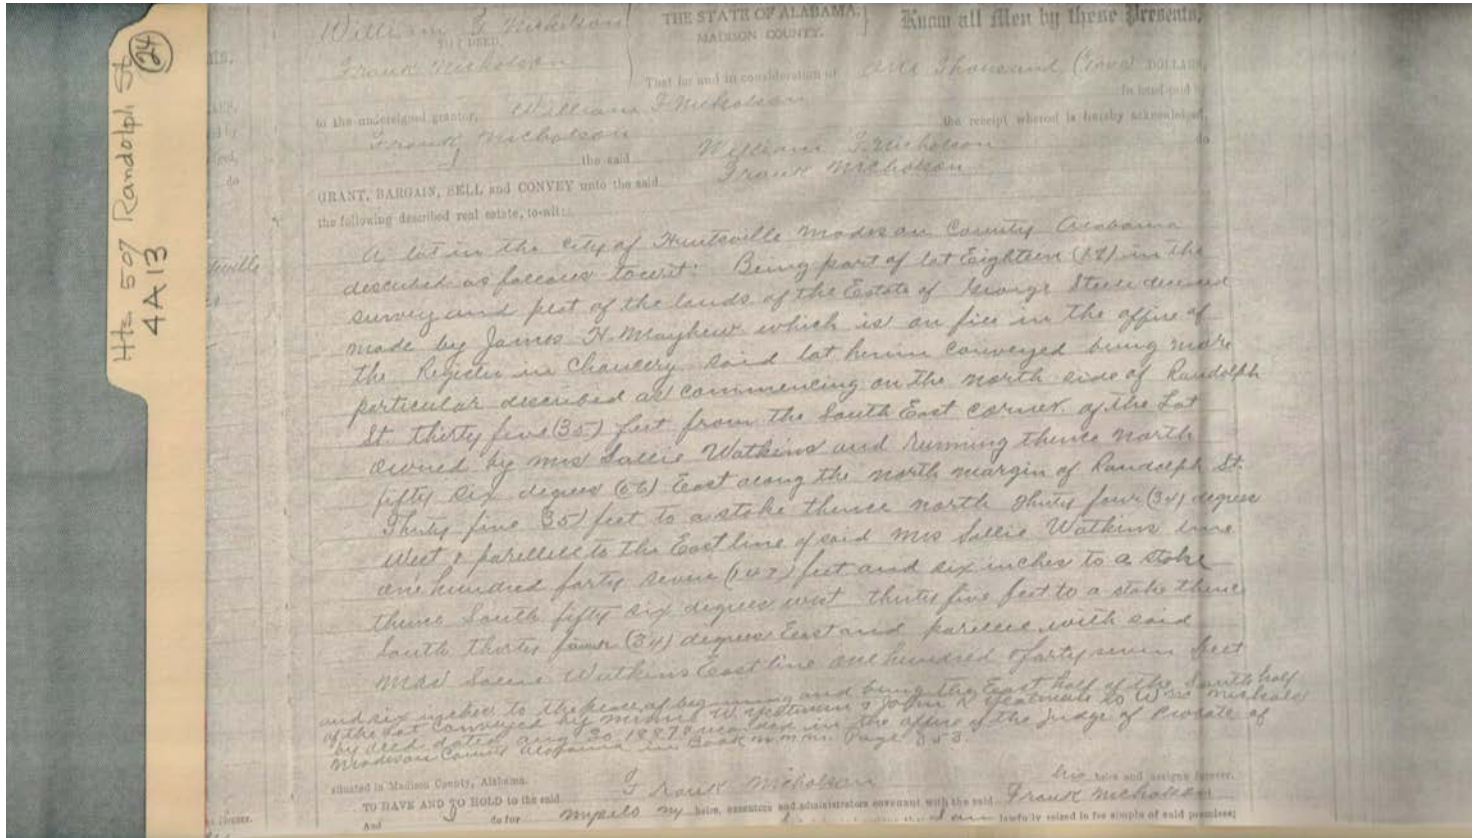 Hτs 507 Randolph St
24
4A13
William F Nicholson
TO } DEED.
Frank Nicholson
THE STATE OF ALABAMA,
MADISON COUNTY.
Know all Men by these Presents,
That for and in consideration of One Thousand DOLLARS,
to the undersigned grantor, William F Nicholson in hand paid
Frank Nicholson the receipt whereof is hereby acknowledged,
I the said William F. Nicholson do
GRANT, BARGAIN, SELL and CONVEY unto the said Frank Nicholson
the following described real estate, to-wit:
A lot in the city of Huntsville Madison County Alabama
described as follows towit: Being part of lot Eighteen (18) in the
survey and plat of the lands of the Estate of George Steele deceased
made by James H. Mayhew which is on file in the office of
the Register in Chancery said lot herein conveyed being more
particular described as commencing on the north side of Randolph
St. thirty five (35) feet from the South East corner of the Lot
owned by Mrs Sallie Watkins and running thence north
fifty six degrees (56) East along the north margin of Randolph St.
Thirty five 35) feet to a stake thence north thirty four (34) degrees
West & parellell to the East line of said Mrs Sallie Watkins line
one hundred forty seven (147) feet and six inches to a stake
thence South fifty six degrees west thirty five feet to a stake thence
South thirty four (34) degrees East and parellel with said
Mrs Sallie Watkins East line one hundred & forty seven feet
and six inches to the place of beginning and being the East half of the South half
of the lot conveyed by Minnie W. & John R to Wm
by deed dated Aug 30 1887 recorded in the office of the Judge of Probate of
Madison County Alabama in Book m.m.m. Page 353.
situated in Madison County, Alabama.
TO HAVE AND TO HOLD to the said Frank Nicholson his heirs and assigns forever.
And I do for myself my heirs, executors and administrators covenant with the said Frank Nicholson
I am lawfully seized in fee simple of said premises;